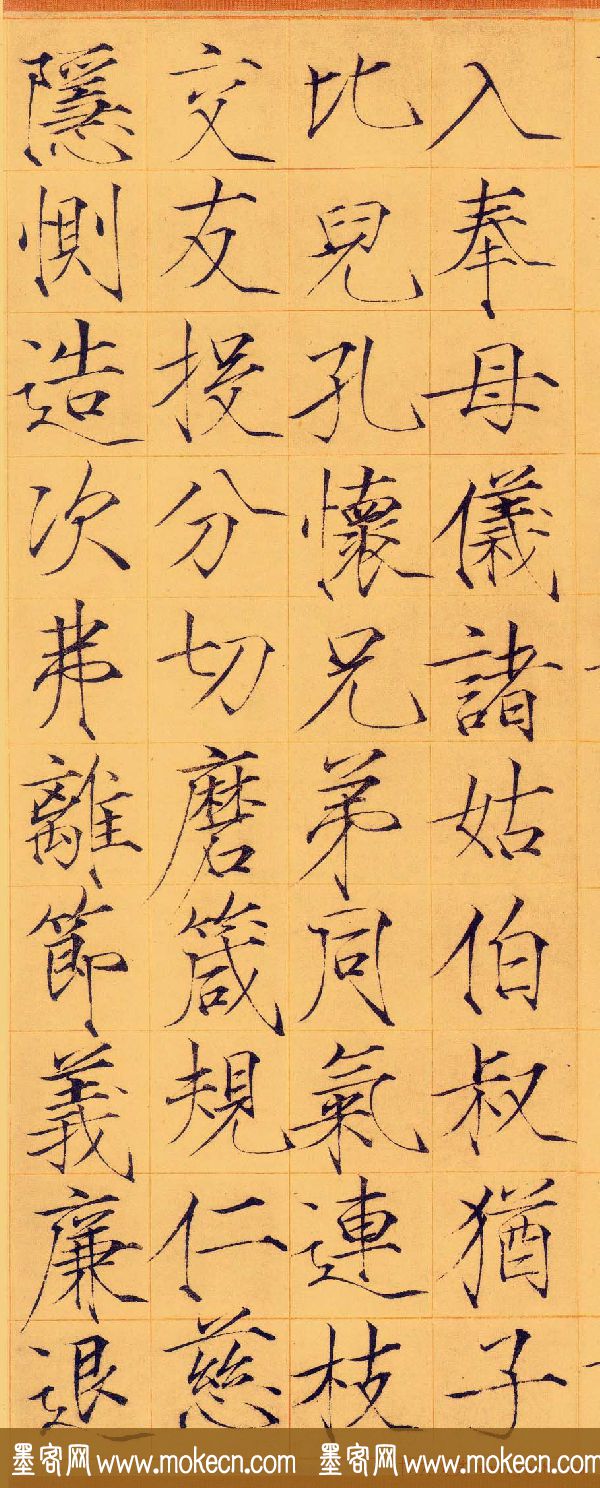 入奉母儀諸姑伯叔猶子
比兒孔懷兄弟同氣連枝
交友投分切磨箴規仁慈
隱惻造次弗離節義廉退
墨客网 www.mokecn.com 墨客网 www.mokecn.com